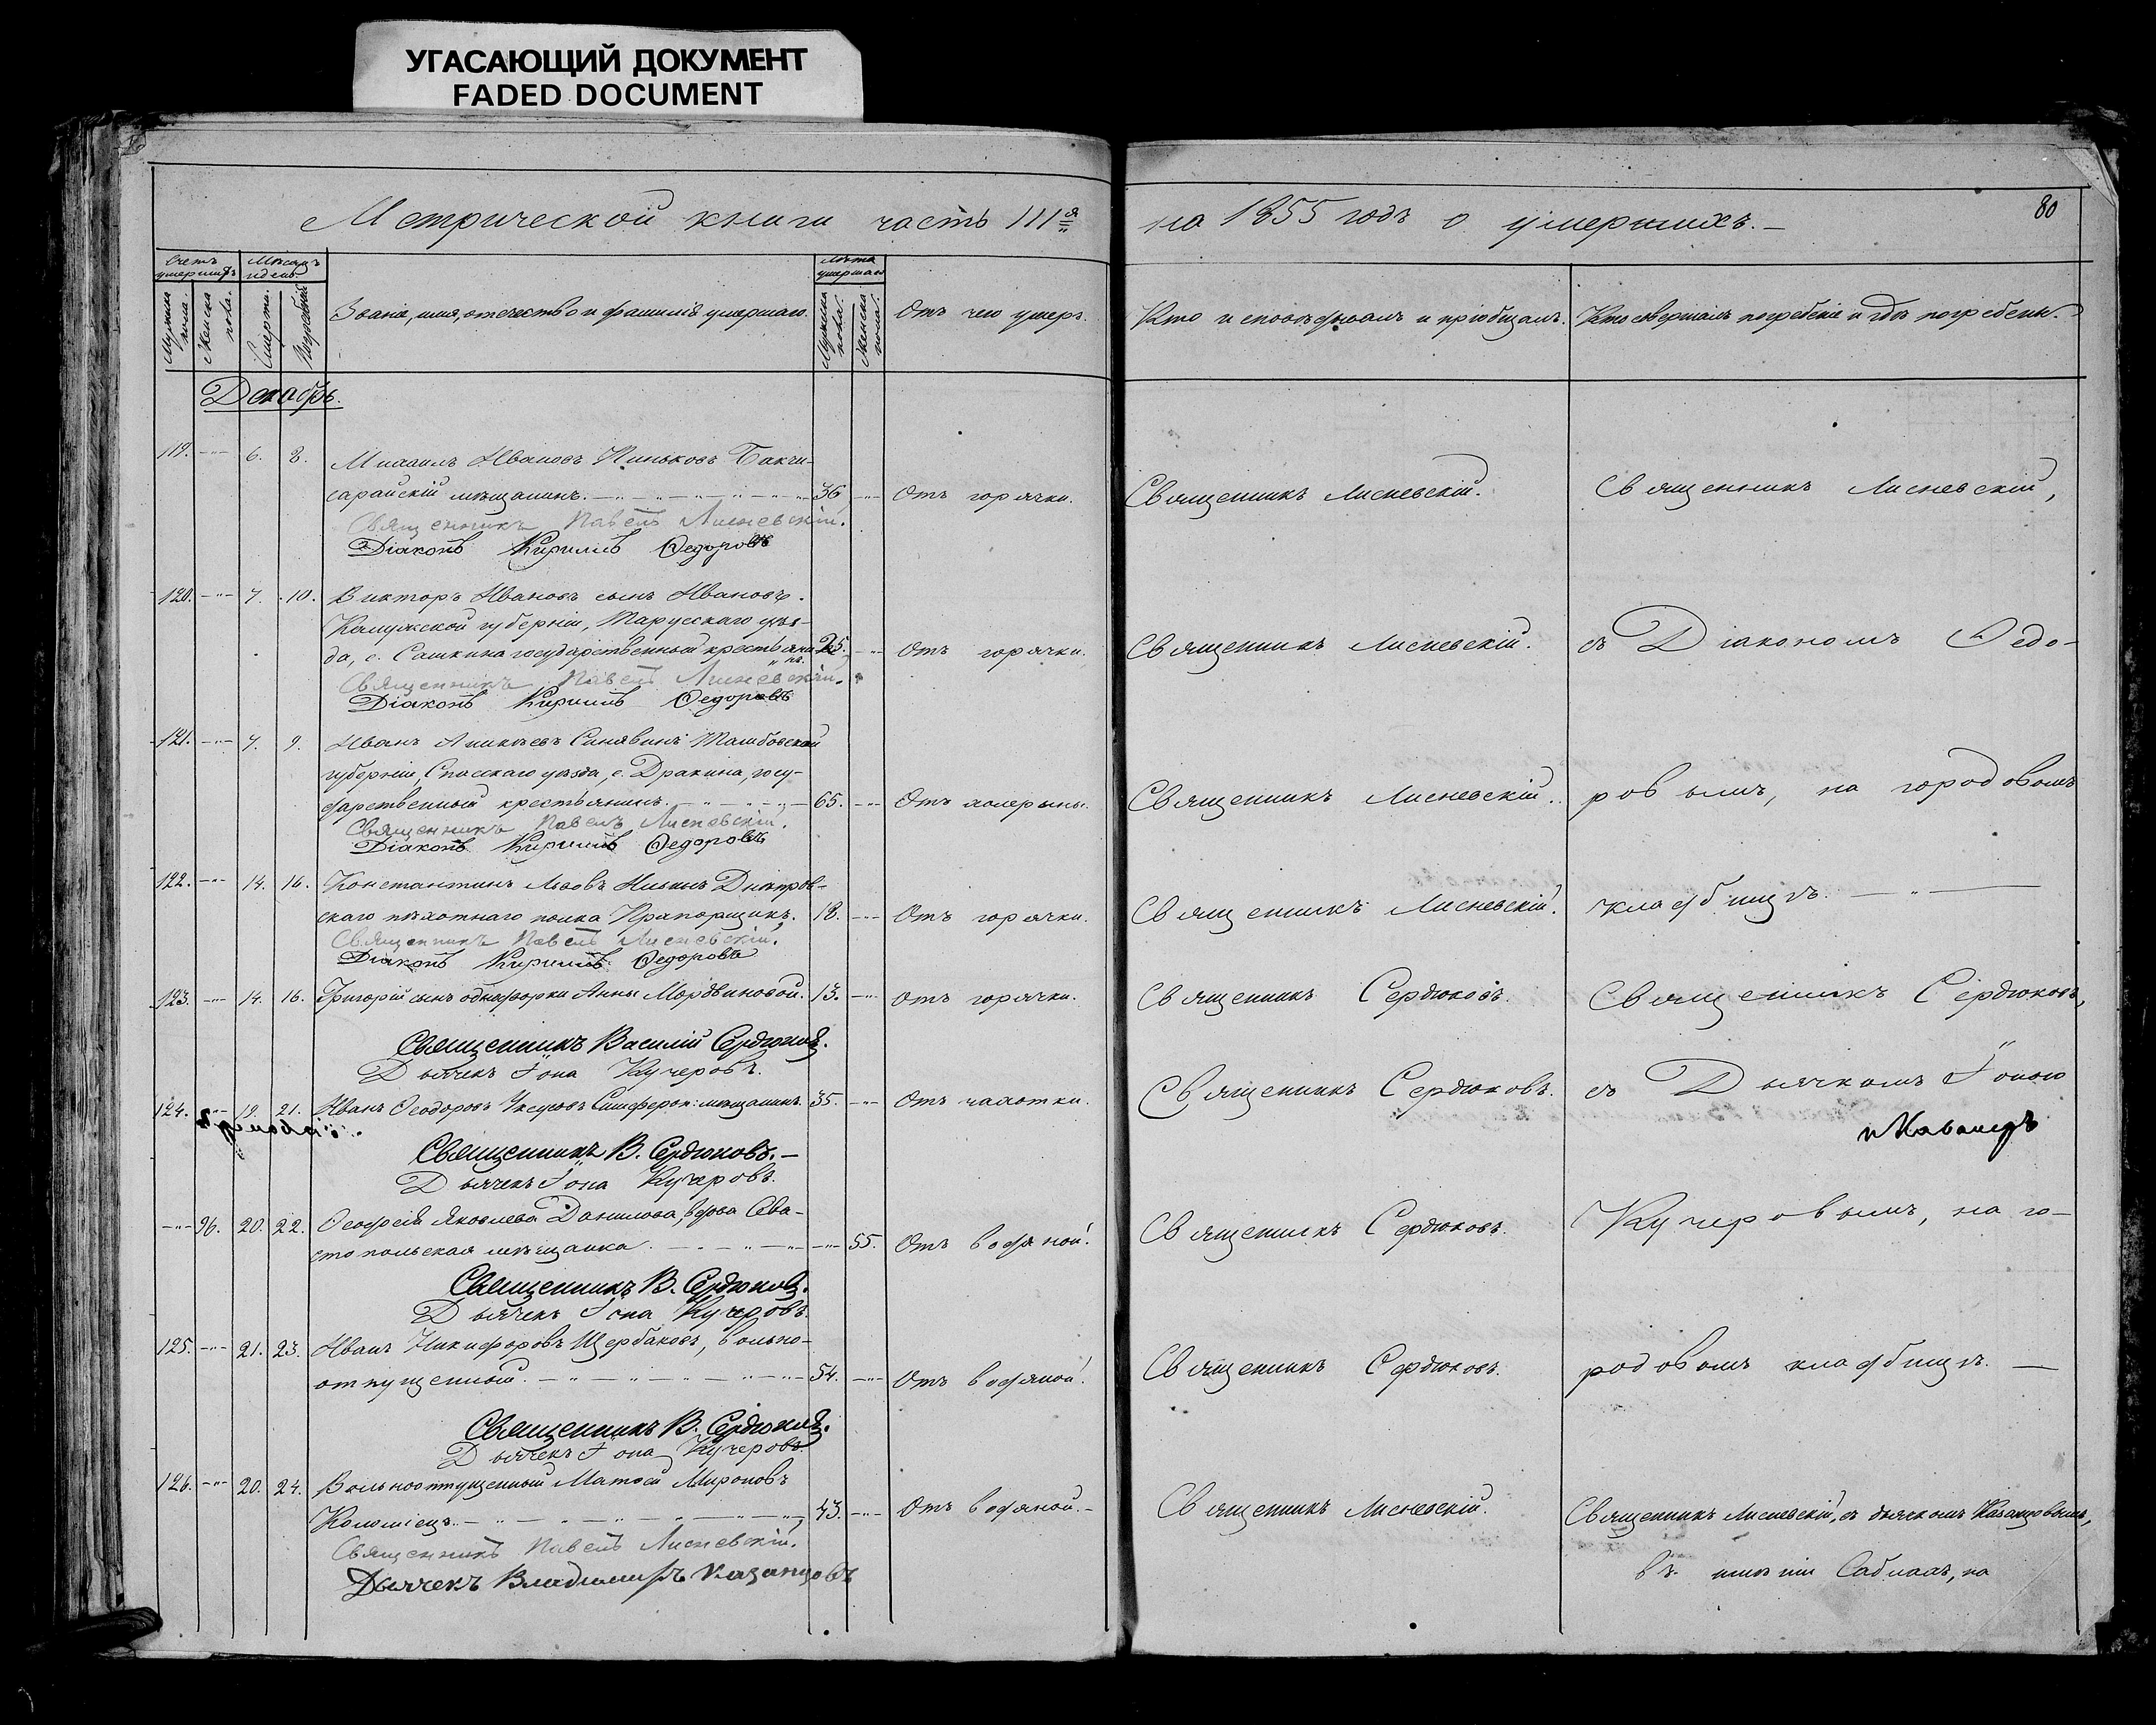 УГАСАЮЩИЙ ДОКУМЕНТ
FADED DOCUMENT
Метрической книги часть III я
на 1855 годъ о умершихъ.
80
Счетъ умершихъ
Мѣсяцъ и день
Мужска пола.
Женска пола.
Смерти.
Погребенія
Званіе, имя, отечество и фамилія умершаго.
Лѣта умершаго
Мужска пола.
Женска пола.
Отъ чего умеръ.
Кто исповѣдывалъ и пріобщалъ.
Кто совершалъ погребеніе и гдѣ погребены.
Декабрь.
119. 6. 8. Михаилъ Ивановъ Пиньковъ Бакчи-
сарайскій мѣщанинъ. 36 Отъ горячки. Священникъ Лисневскій. Священникъ Лисневскій,
Священникъ Павелъ Лисневскій.
Діаконъ Кириллъ Ѳедоровъ
120. 7. 10. Викторъ Ивановъ сынъ Ивановъ.
Калужской губерніи, Тарусскаго уѣз-
да, с. Сашкина государственный крестьянинъ 25. Отъ горячки. Священникъ Лисневскій. съ Діакономъ Ѳедо-
Священникъ Павелъ Лисневскій.
Діаконъ Кириллъ Ѳедоровъ
121. 7. 9. Иванъ Аникѣевъ Синявинъ Тамбовской
губерніи, Спасскаго уѣзда, с. Дракина, госу-
дарственный крестьянинъ. 65. Отъ холерины. Священникъ Лисневскій. ровымъ, на городовомъ
Священникъ Павелъ Лисневскій.
Діаконъ Кириллъ Ѳедоровъ
122. 14. 16. Константинъ Львовъ Ильинъ Днѣпров-
скаго пѣхотнаго полка Прапорщикъ. 18. Отъ горячки. Священникъ Лисневскій. кладбищѣ.
Священникъ Павелъ Лисневскій.
Діаконъ Кириллъ Ѳедоровъ
123. 14. 16. Григорій сынъ однодворки Анны Мордвиновой. 13. Отъ горячки. Священникъ Сердюковъ. Священникъ Сердюковъ,
Священникъ Василій Сердюковъ.
Дьячекъ Іона Кучеровъ.
124. 19. 21. Иванъ Ѳеодоровъ Симфероп: мѣщанинъ. 35. Отъ чахотки. Священникъ Сердюковъ. съ Дьячкомъ Іоною
Священникъ В. Сердюковъ.
Дьячекъ Іона Кучеровъ.
96. 20. 22. Ѳеодосія Яковлева Данилова, вдова Сева-
стопольская мѣщанка. 55. Отъ водяной. Священникъ Сердюковъ. Кучеровымъ, на го-
Священникъ В. Сердюковъ.
Дьячекъ Іона Кучеровъ.
125. 21. 23. Иванъ Никифоровъ Щербаковъ, вольно-
отпущенный. 54. Отъ водяной. Священникъ Сердюковъ. родовомъ кладбищѣ.
Священникъ В. Сердюковъ.
Дьячекъ Іона Кучеровъ.
126. 20. 24. Вольноотпущенный Матѳей Мироновъ
Коломіецъ. 43. Отъ водяной. Священникъ Лисневскій. Священникъ Лисневскій, съ дьячкомъ Казанцовымъ,
Священникъ Павелъ Лисневскій. въ имѣніи Саблахъ, на
Дьячекъ Владимиръ Казанцовъ